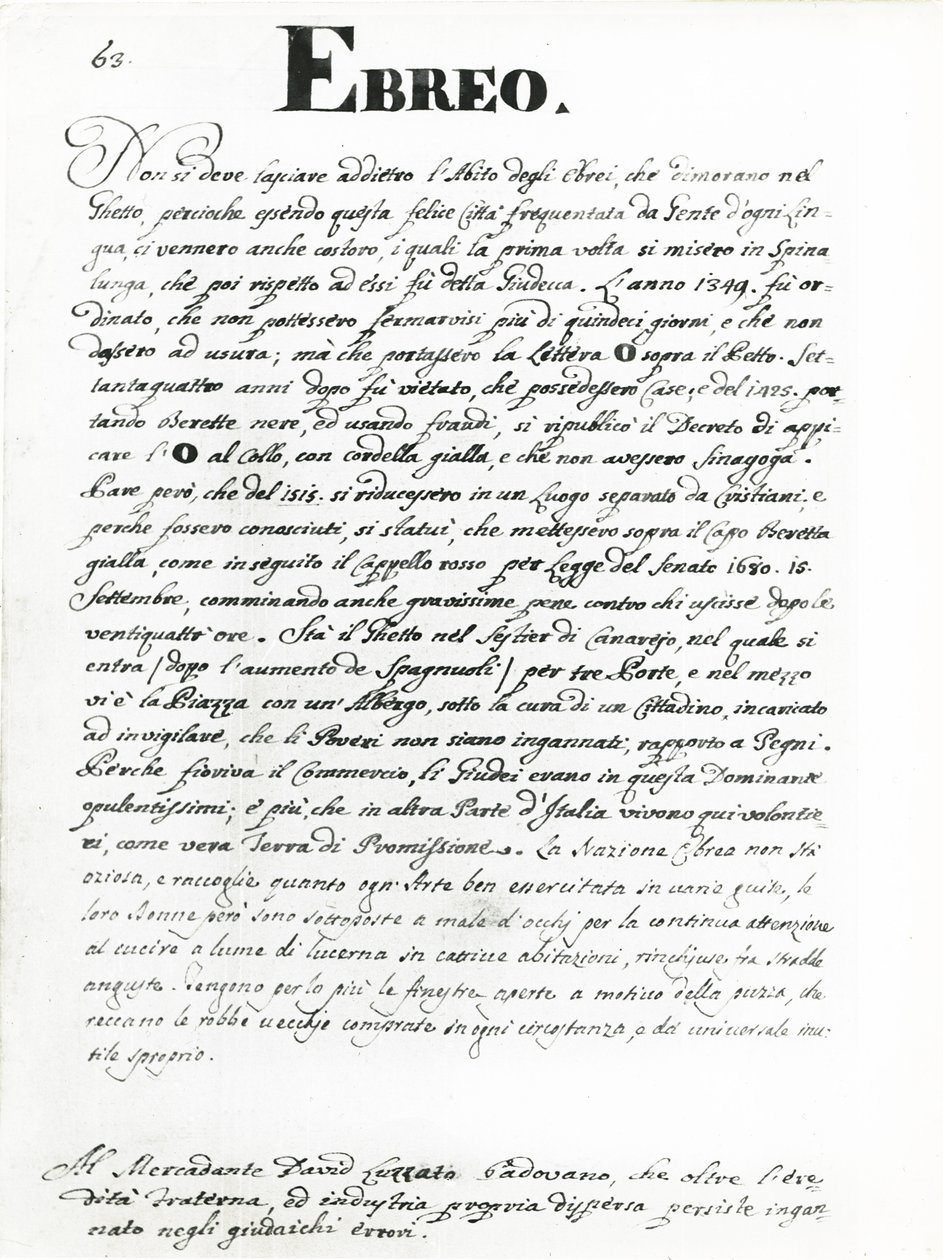 63.
EBREO.
Non si deve lasciare addietro l'Abito degli Ebrei, che dimorano nel
Ghetto, percioche essendo questa felice Città frequentata da Gente d'ogni Lin=
gua, ci vennero anche costoro, i quali la prima volta si misero in Spina
lunga, che poi rispetto ad essi fù detta Giudecca. L'anno 1349. fù or=
dinato, che non pottessero fermarvisi più di quindeci giorni, e che non
dassero ad usura; mà che portassero la Lettera O sopra il Petto. Set=
tantaquattro anni dopo fù vietato, che possedessero Case; e del 1425. por=
tando Berette nere, ed usando fraudi, si ripublicò il Decreto di appi=
care l'O al Collo, con cordella gialla, e che non avessero Sinagoga.
Pare però, che del 1515. si riducessero in un Luogo separato da Cristiani; e
perche fossero conosciuti, si statuì, che mettessero sopra il Capo Beretta
gialla, come in seguito il Cappello rosso per Legge del Senato 1680. 15.
Settembre, comminando anche gravissime pene contro chi uscisse dopo le
ventiquattr'ore. Stà il Ghetto nel Sestier di Canarejo, nel quale si
entra / dopo l'aumento de Spagnuoli / per tre Porte, e nel mezzo
vi è la Piazza con un' Albergo, sotto la cura di un Cittadino, incaricato
ad invigilare, che li Poveri non siano ingannati, rapporto a Pegni.
Perche fioriva il Commercio, li Giudei erano in questa Dominante
opulentissimi; e più, che in altra Parte d'Italia vivono qui volontie=
ri, come vera Terra di Promissione. La Nazione Ebrea non stà
oziosa, e raccoglie quanto ogn' Arte ben essercitata in varie guise, le
loro Donne però sono sottoposte a male d'occhj per la continua attenzione
al cucire a lume di lucerna in cattive abitazioni, rinchjuse tra stradde
anguste. Tengono per lo più le finestre aperte a motivo della puzza, che
reccano le robbe vecchje comprate in ogni circostanza, e da universale inu=
tile sproprio.
Al Mercadante David Luzzato Padovano, che oltre l'ere=
dità fraterna, ed industria propria dispersa persiste ingan=
nato negli giudaichi errori.